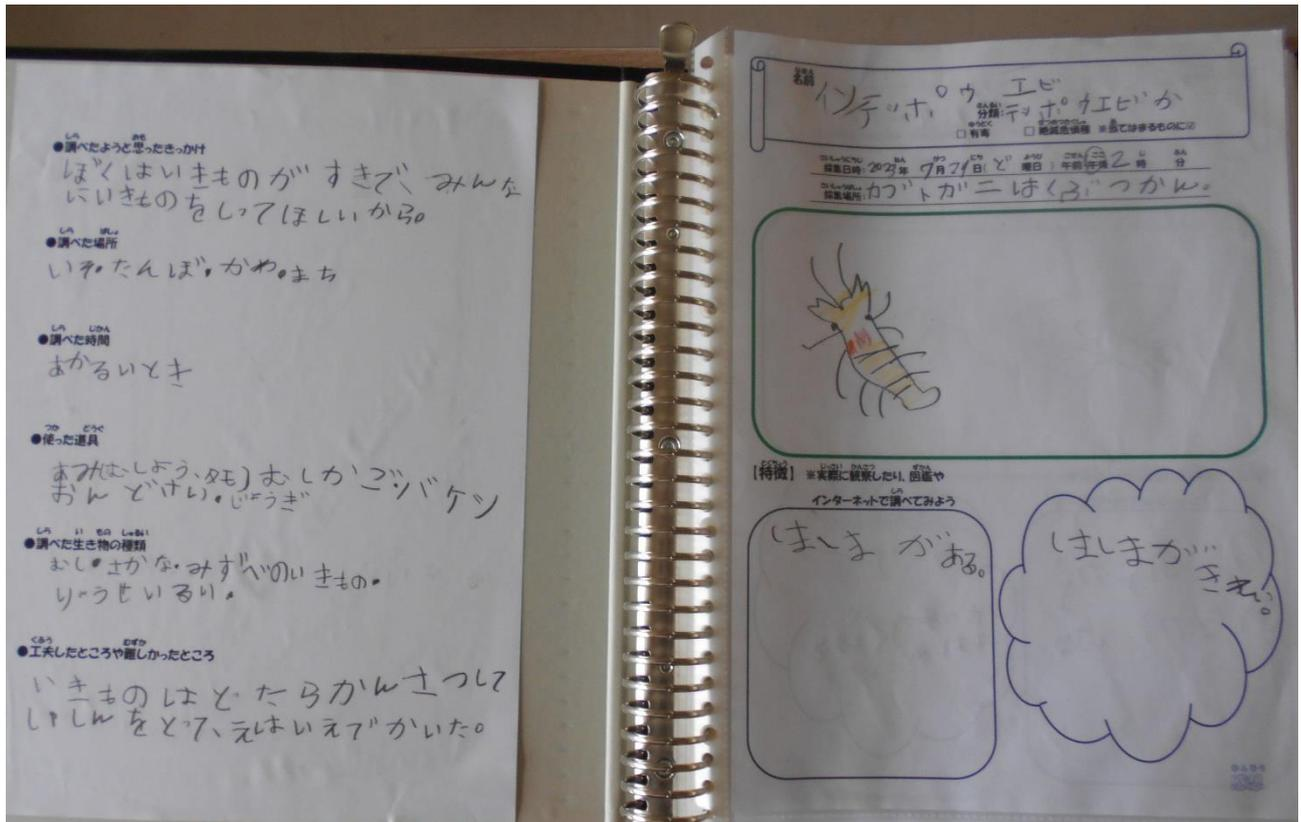 ●調べようと思ったきっかけ
ぼくはいきものがすきで、みんな
にいきものをしってほしいから。
●調べた場所
いそ・たんぼ・かわ・まち
●調べた時間
あかるいとき
●使った道具
あみ(むしよう、タモ)むしかご・バケツ
おんどけい・じょうぎ
●調べた生き物の種類
むし・さかな・みずべのいきもの・
りょうせいるい・
●工夫したところや難しかったところ
いきものは
かんさつして
しゃしんをとって、えはいえでかいた。
名前
イソテッポウエビ
分類:テッポウエビか
□有毒 □絶滅危惧種 ※当てはまるものに☑
採集日時:2023年 7月29日(ど 曜日)午前・午後2時 分
採集場所:カブトガニはくぶつかん。
【特徴】 ※実際に観察したり、図鑑や
インターネットで調べてみよう
はしまがある。
はしまが
きれい。